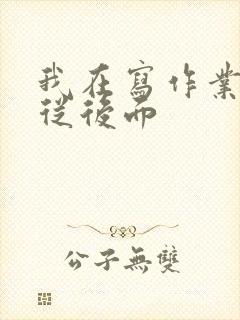 我在寫作業
從後面
公子無雙